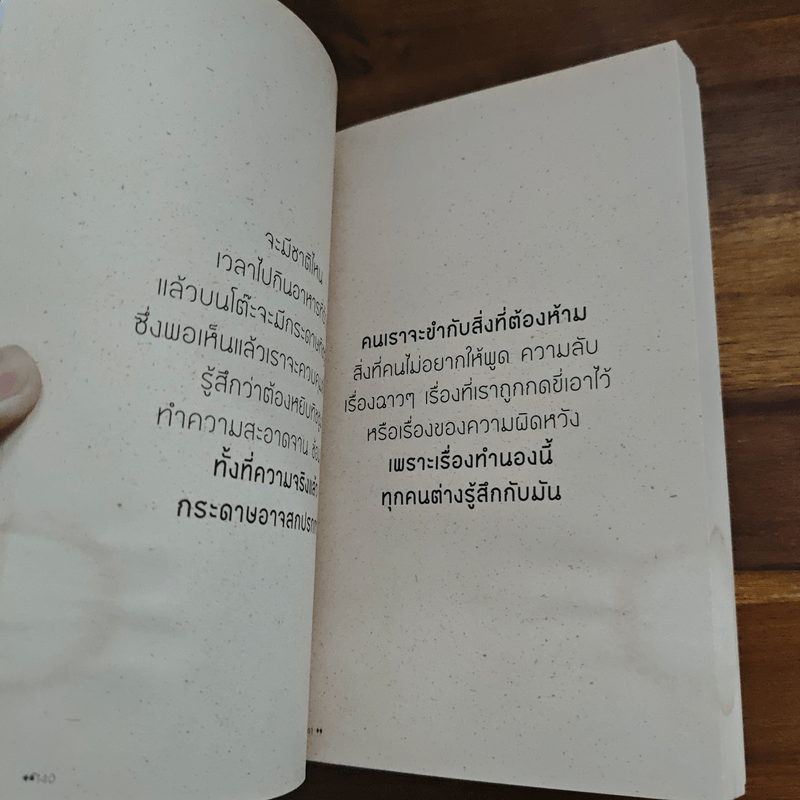 จะมีชาติไหน
เวลาไปกินอาหาร
แล้วบนโต๊ะจะมีกระดาษ
ซึ่งพอเห็นแล้วเราจะควบคุม
รู้สึกว่าต้องหยิบ
ทำความสะอาดจาน
ทั้งที่ความจริงแล้ว
กระดาษอาจสกปรก
140
คนเราจะขำกับสิ่งที่ต้องห้าม
สิ่งที่คนไม่อยากให้พูด ความลับ
เรื่องฉาวๆ เรื่องที่เราถูกกดขี่เอาไว้
หรือเรื่องของความผิดหวัง
เพราะเรื่องทำนองนี้
ทุกคนต่างรู้สึกกับมัน